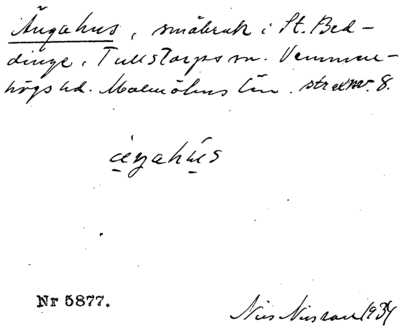 Ängahus, småbruk i St. Bed-
dinge, Tullstorps sn. Vemmen-
högs hd. Malmöhus län. strecknr. 8.
Nr 5877.
Nils Nilsson 1934